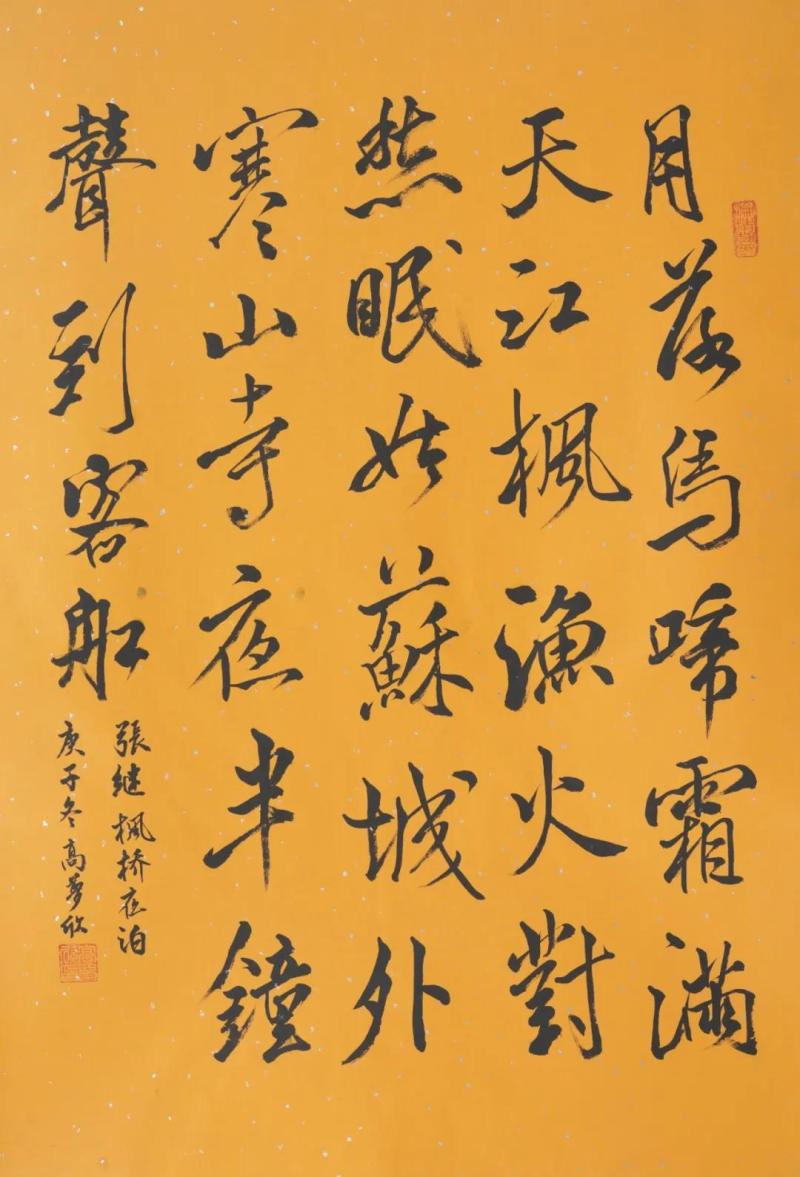 月落烏啼霜滿
天江楓漁火對
愁眠姑蘇城外
寒山寺夜半鐘
聲到客船
張继楓桥夜泊
庚子冬高夢欣